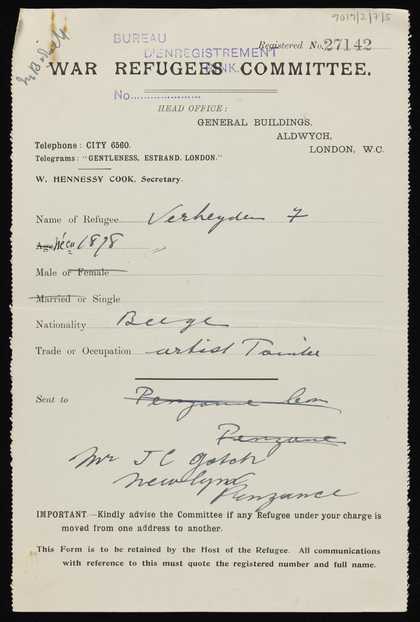 7017/2/7/5
BUREAU
D'ENREGISTREMENT
Registered No. 27142
WAR REFUGEES COMMITTEE.
No.
HEAD OFFICE:
GENERAL BUILDINGS,
ALDWYCH,
LONDON, W.C.
Telephone: CITY 6560.
Telegrams: "GENTLENESS, ESTRAND, LONDON."
W. HENNESSY COOK, Secretary.
Name of Refugee Verheyden F
Age né en 1898
Male or Female
Married or Single
Nationality Belge
Trade or Occupation artist Peintre
Sent to Penzance
Penzance
Mr J C Gotch
Newlyn
Penzance
IMPORTANT.—Kindly advise the Committee if any Refugee under your charge is
moved from one address to another.
This Form is to be retained by the Host of the Refugee. All communications
with reference to this must quote the registered number and full name.